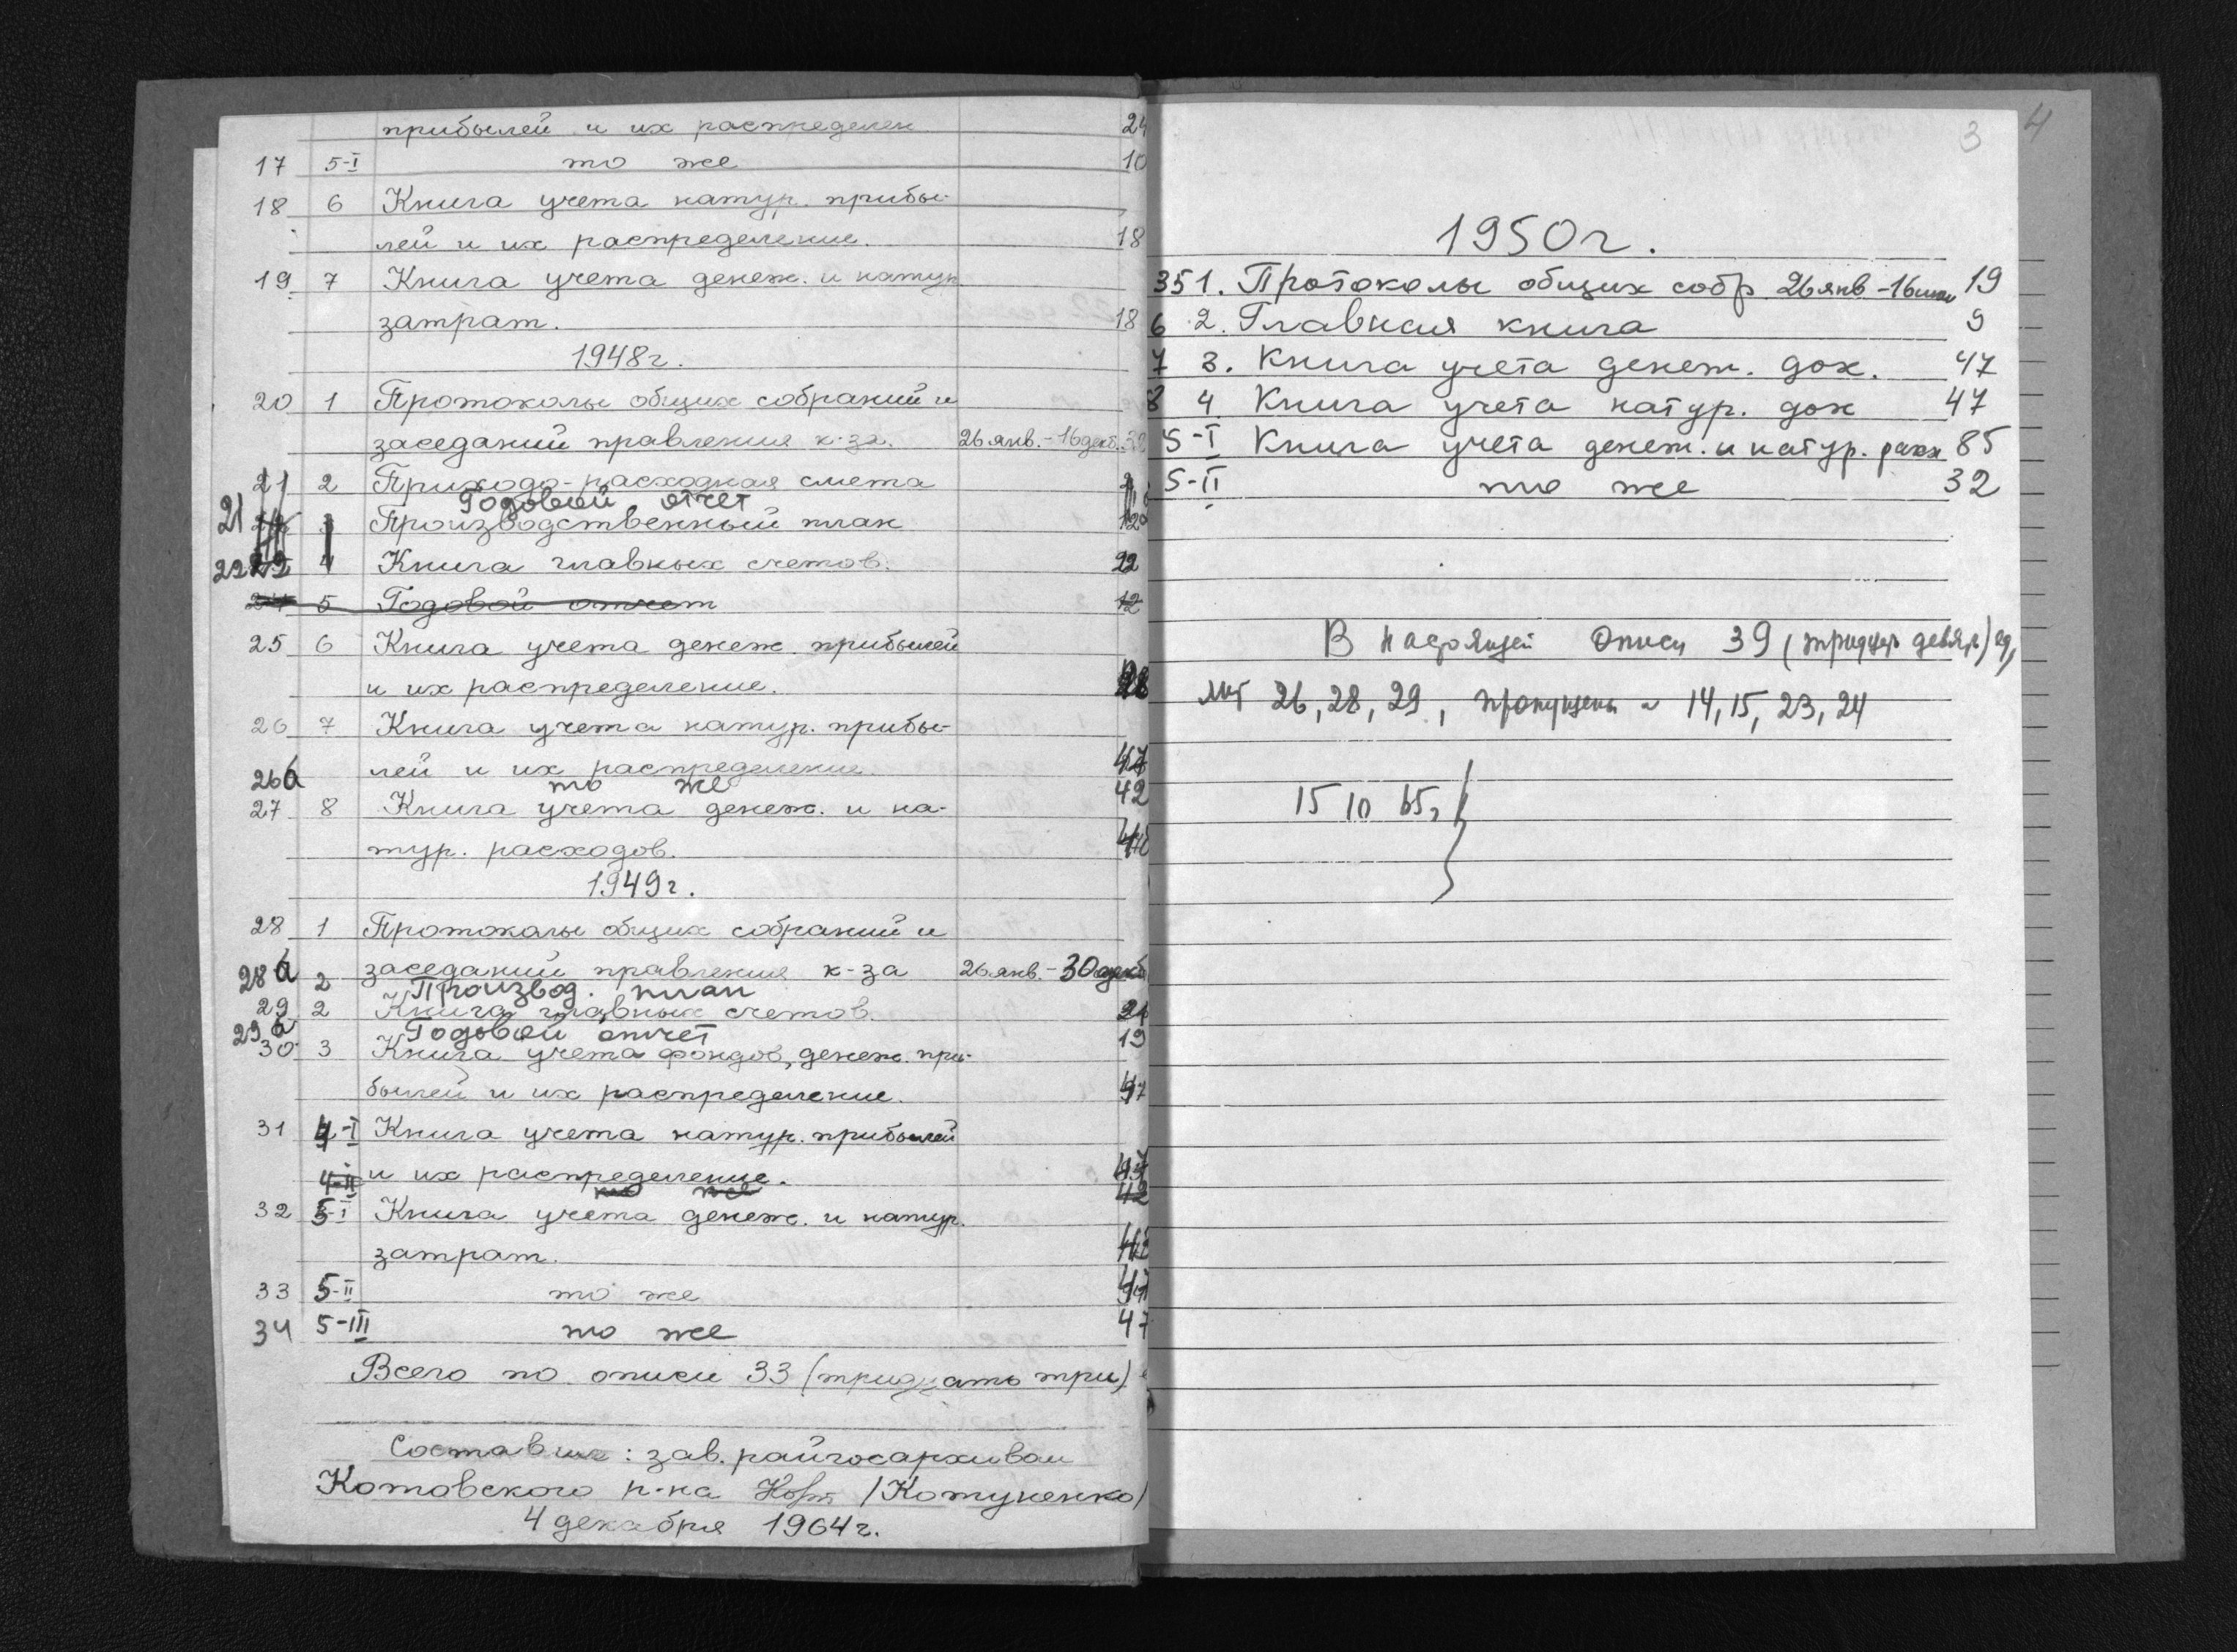 прибылей и их распределен 24
17 5-I то же 10
18 6 Книга учета натур. прибы-
лей и их распределение. 18
19 7 Книга учета денеж. и натур.
затрат. 18
1948г.
20 1 Протоколы общих собраний и
заседаний правления к-за. 26 янв.-16 декб.
21 2 Приходо-расходная смета
Годовой отчет
21 Производственный план 12
22 4 Книга главных счетов. 22
24 5 Годовой отчет 12
25 6 Книга учета денеж. прибылей
и их распределение.
26 7 Книга учета натур. прибы-
лей и их распределение. 47
26а то же 42
27 8 Книга учета денеж. и на-
тур. расходов.
1949г.
28 1 Протоколы общих собраний и
заседаний правления к-за 26 янв.-30 декб
28а 2 Производ. план
29 2 Книга главных счетов. 24
29а Годовой отчет 19
30 3 Книга учета фондов, денеж. при-
былей и их распределение. 47
31 4-I Книга учета натур. прибылей
и их распределение. 47
4-II то же 42
32 5-I Книга учета денеж. и натур.
затрат.
33 5-II то же
34 5-III то же 47
Всего по описи 33 (тридцать три)
Составил: зав. райгосархивом
Котовского р-на /Котуненко/
4 декабря 1964г.
3 4
1950г.
35 1. Протоколы общих собр 26 янв - 16 19
6 2. Главная книга 9
7 3. Книга учета денеж. дох. 47
8 4. Книга учета натур. дох 47
5-I Книга учета денеж. и натур. расх 85
5-II то же 32
В настоящей описи 39 (тридцать девять) ед,
лит 26, 28, 29, пропущены 14, 15, 23, 24
15 10 65г